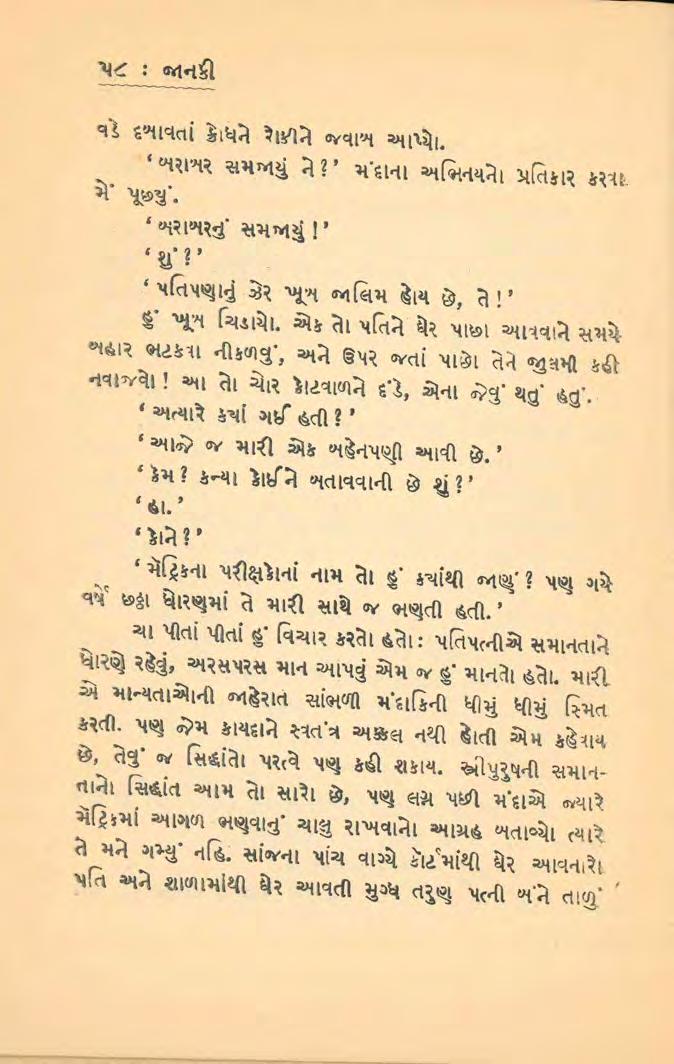 ૫૮ : જાનકી
વડે દબાવતાં ક્રોધને રોકીને જવાબ આપ્યો.
‘બરાબર સમજાયું ને?’ મંદાના અભિનયનો પ્રતિકાર કરવા
મેં પૂછ્યું.
‘બરાબરનું સમજાયું!’
‘શું?’
‘પતિપણાનું ઝેર ખૂબ જાલિમ હોય છે, તે!’
હું ખૂબ ચિડાયો. એક તો પતિને ઘેર પાછા આવવાને સમયે
બહાર ભટકવા નીકળવું, અને ઉપર જતાં પાછો તેને જુલમી કહી
નવાજવો! આ તો ચોર કોટવાળને દંડે, એના જેવું થતું હતું.
‘અત્યારે ક્યાં ગઈ હતી?’
‘આજે જ મારી એક બહેનપણી આવી છે.’
‘કેમ? કન્યા કોઈને બતાવવાની છે શું?’
‘હા.’
‘કોને?’
‘મૅટ્રિકના પરીક્ષકોનાં નામ તો હું ક્યાંથી જાણું? પણ ગયે
વર્ષે છઠ્ઠા ધોરણમાં તે મારી સાથે જ ભણતી હતી.’
ચા પીતાં પીતાં હું વિચાર કરતો હતો: પતિપત્નીએ સમાનતાને
ધોરણે રહેવું, અરસપરસ માન આપવું એમ જ હું માનતો હતો. મારી
એ માન્યતાઓની જાહેરાત સાંભળી મંદાકિની ધીમું ધીમું સ્મિત
કરતી. પણ જેમ કાયદાને સ્વતંત્ર અક્કલ નથી હોતી એમ કહેવાય
છે, તેવું જ સિદ્ધાંતો પરત્વે પણ કહી શકાય. સ્ત્રીપુરુષની સમાન-
તાનો સિદ્ધાંત આમ તો સારો છે, પણ લગ્ન પછી મંદાએ જ્યારે
મૅટ્રિકમાં આગળ ભણવાનું ચાલુ રાખવાનો આગ્રહ બતાવ્યો ત્યારે
તે મને ગમ્યું નહિ. સાંજના પાંચ વાગ્યે કૉર્ટમાંથી ઘેર આવનારો
પતિ અને શાળામાંથી ઘેર આવતી મુગ્ધ તરુણ પત્ની બંને તાળું